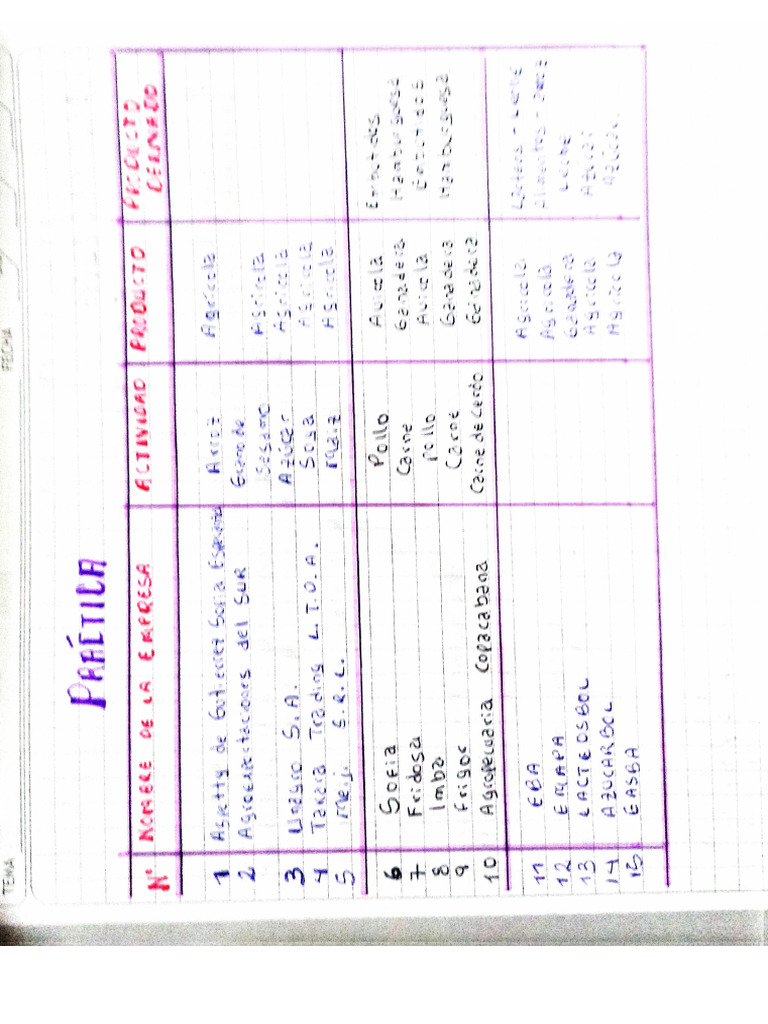 TEMA
FECHA
PRÁCTICA
N° NOMBRE DE LA EMPRESA ACTIVIDAD PRODUCTO PRODUCTO DERIVADO
1 de Gutierrez Sofia Arroz Agricola
2 Agroexportaciones del SUR Grano de
Sesamo Agricola
3 Unagro S.A. Azúcar Agricola
4 Trading L.T.D.A. Soya Agricola
5 S.R.L. Maiz Agricola
6 Sofia Pollo Avicola Embutidos
7 Fridosa Carne Ganadera Hamburguesa
8 Imba Pollo Avicola Embutidos
9 Frigor Carne Ganadera Hamburguesa
10 Agropecuaria Copacabana Carne de Cerdo Ganadera
11 EBA Agricola Lacteos - Leche
12 EMAPA Agricola Alimentos -
13 LACTEOSBOL Ganadera Leche
14 AZUCARBOL Agricola Azucar
15 GASBA Agricola Azucar.